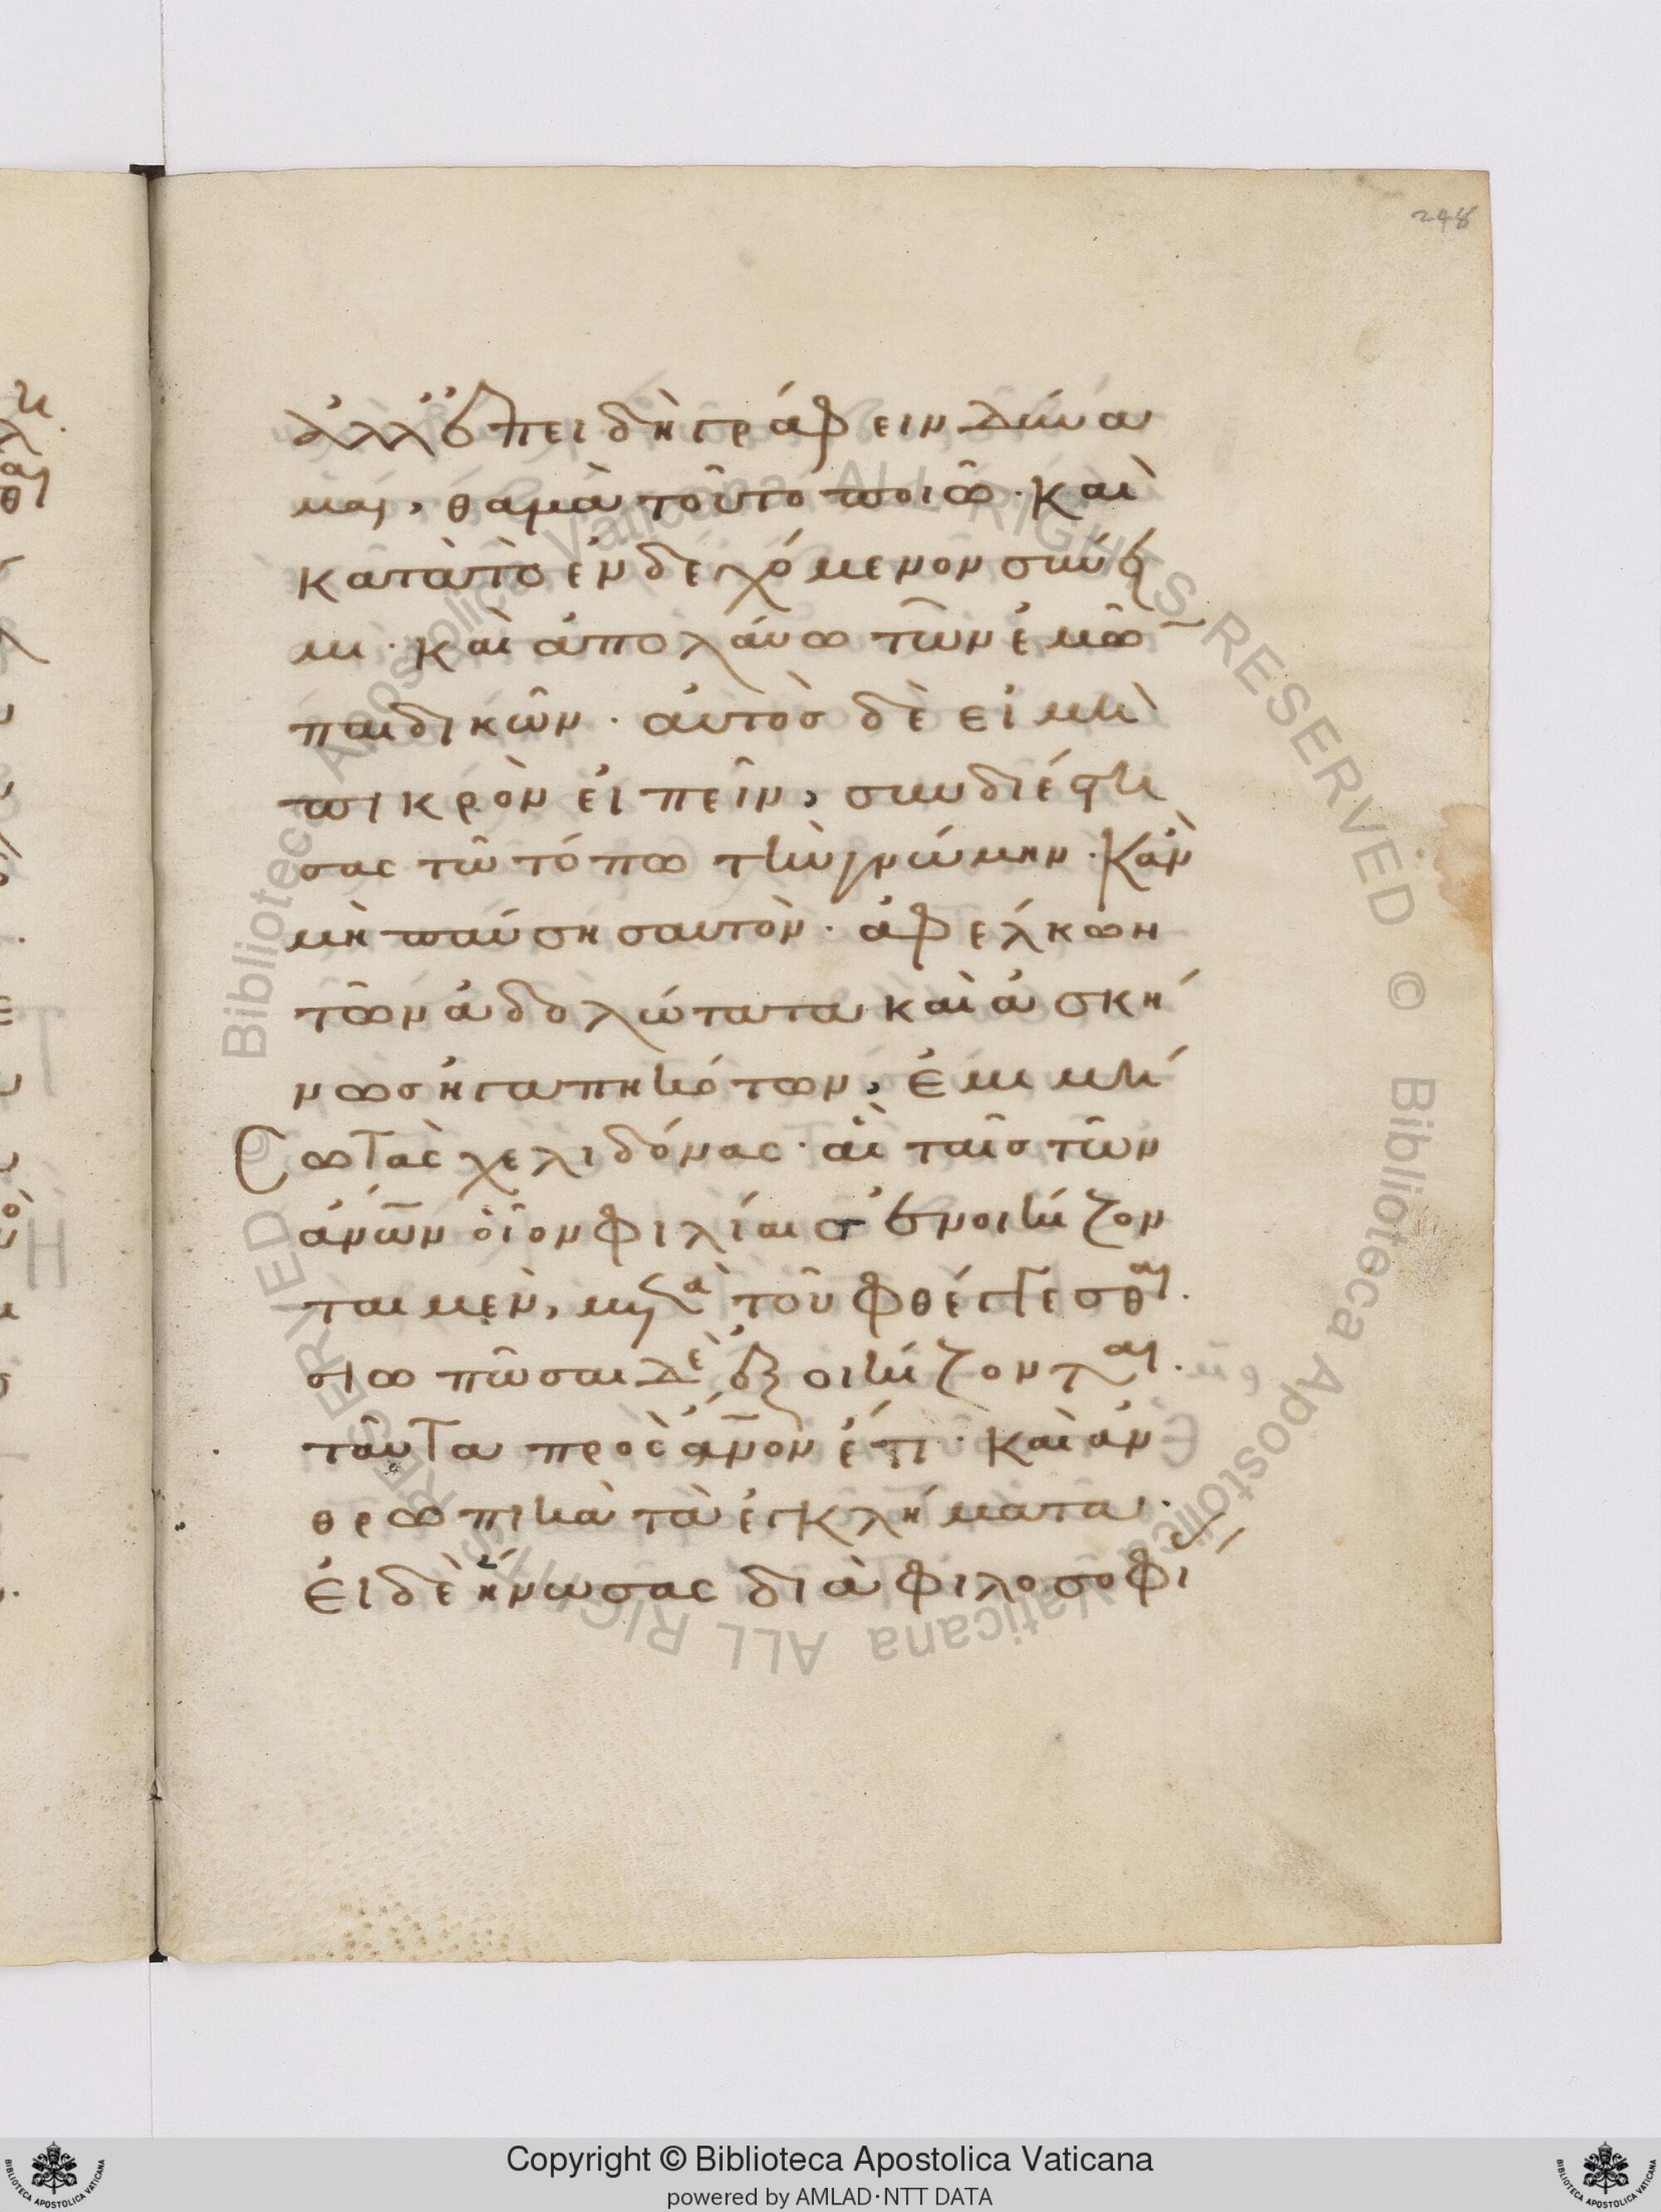 248
ἀλλ' ἐπειδὴ γράφειν δύνα
μαι, θαμὰ τοῦτο ποιῶ. καὶ
κατὰ τὸ ἐνδεχόμενον σύνει
μι. καὶ ἀπολάυω τῶν ἐμῶ̅
παιδικῶν. ἀυτὸσ δὲ εἰ μὴ
πικρὸν ἐιπεῖν, συνδιέστη
σας τῶ τόπω τὴν γνώμην. κἀν
μὴ παύσῃ σαυτὸν. ἀφέλκων
τῶν ἀδολώτατα καὶ ἀσκή
νωσ ἠγαπηκότων, ἐμιμή
σω τὰς χελιδόνας. αἳ ταῖσ τῶν
ἀν̅ων οἷον φιλίαισ ἐνοικίζον
ται μεν, μετὰ τοῦ φθέγγεσθαι.
σιωπῶσαι δὲ ἐξοικίζονται.
ταῦτα πρὸς ἀν̅ον ἐστι. καὶ ἀν
θρωπικὰ τὰ ἐγκλήματα.
ἐι δὲ ἥνωσας διὰ φιλοσοφί
Copyright © Biblioteca Apostolica Vaticana
powered by AMLAD·NTT DATA